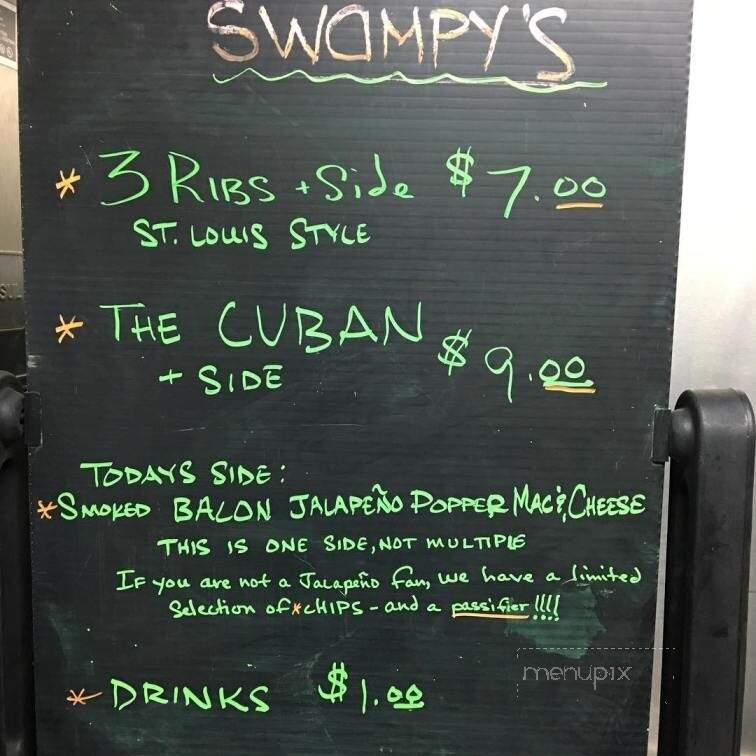 SWAMPY'S
* 3 RIBS + Side $7.00
ST. LOUIS STYLE
* THE CUBAN $9.00
+ SIDE
TODAYS SIDE:
*SMOKED BACON JALAPEÑO POPPER MAC & CHEESE
THIS IS ONE SIDE, NOT MULTIPLE
IF you are not a Jalapeño fan, we have a limited
Selection of *CHIPS - and a passifier !!!!
* DRINKS $1.00
menupix